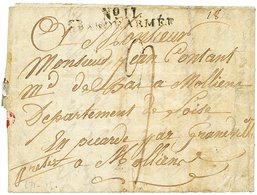 No 11.
GRANDE ARMÉE
18
A Monsieur
Monsieur jean Contant
md de Bas a Molliens
Departement de Loise
En picardie par grandvilé
a Molliens